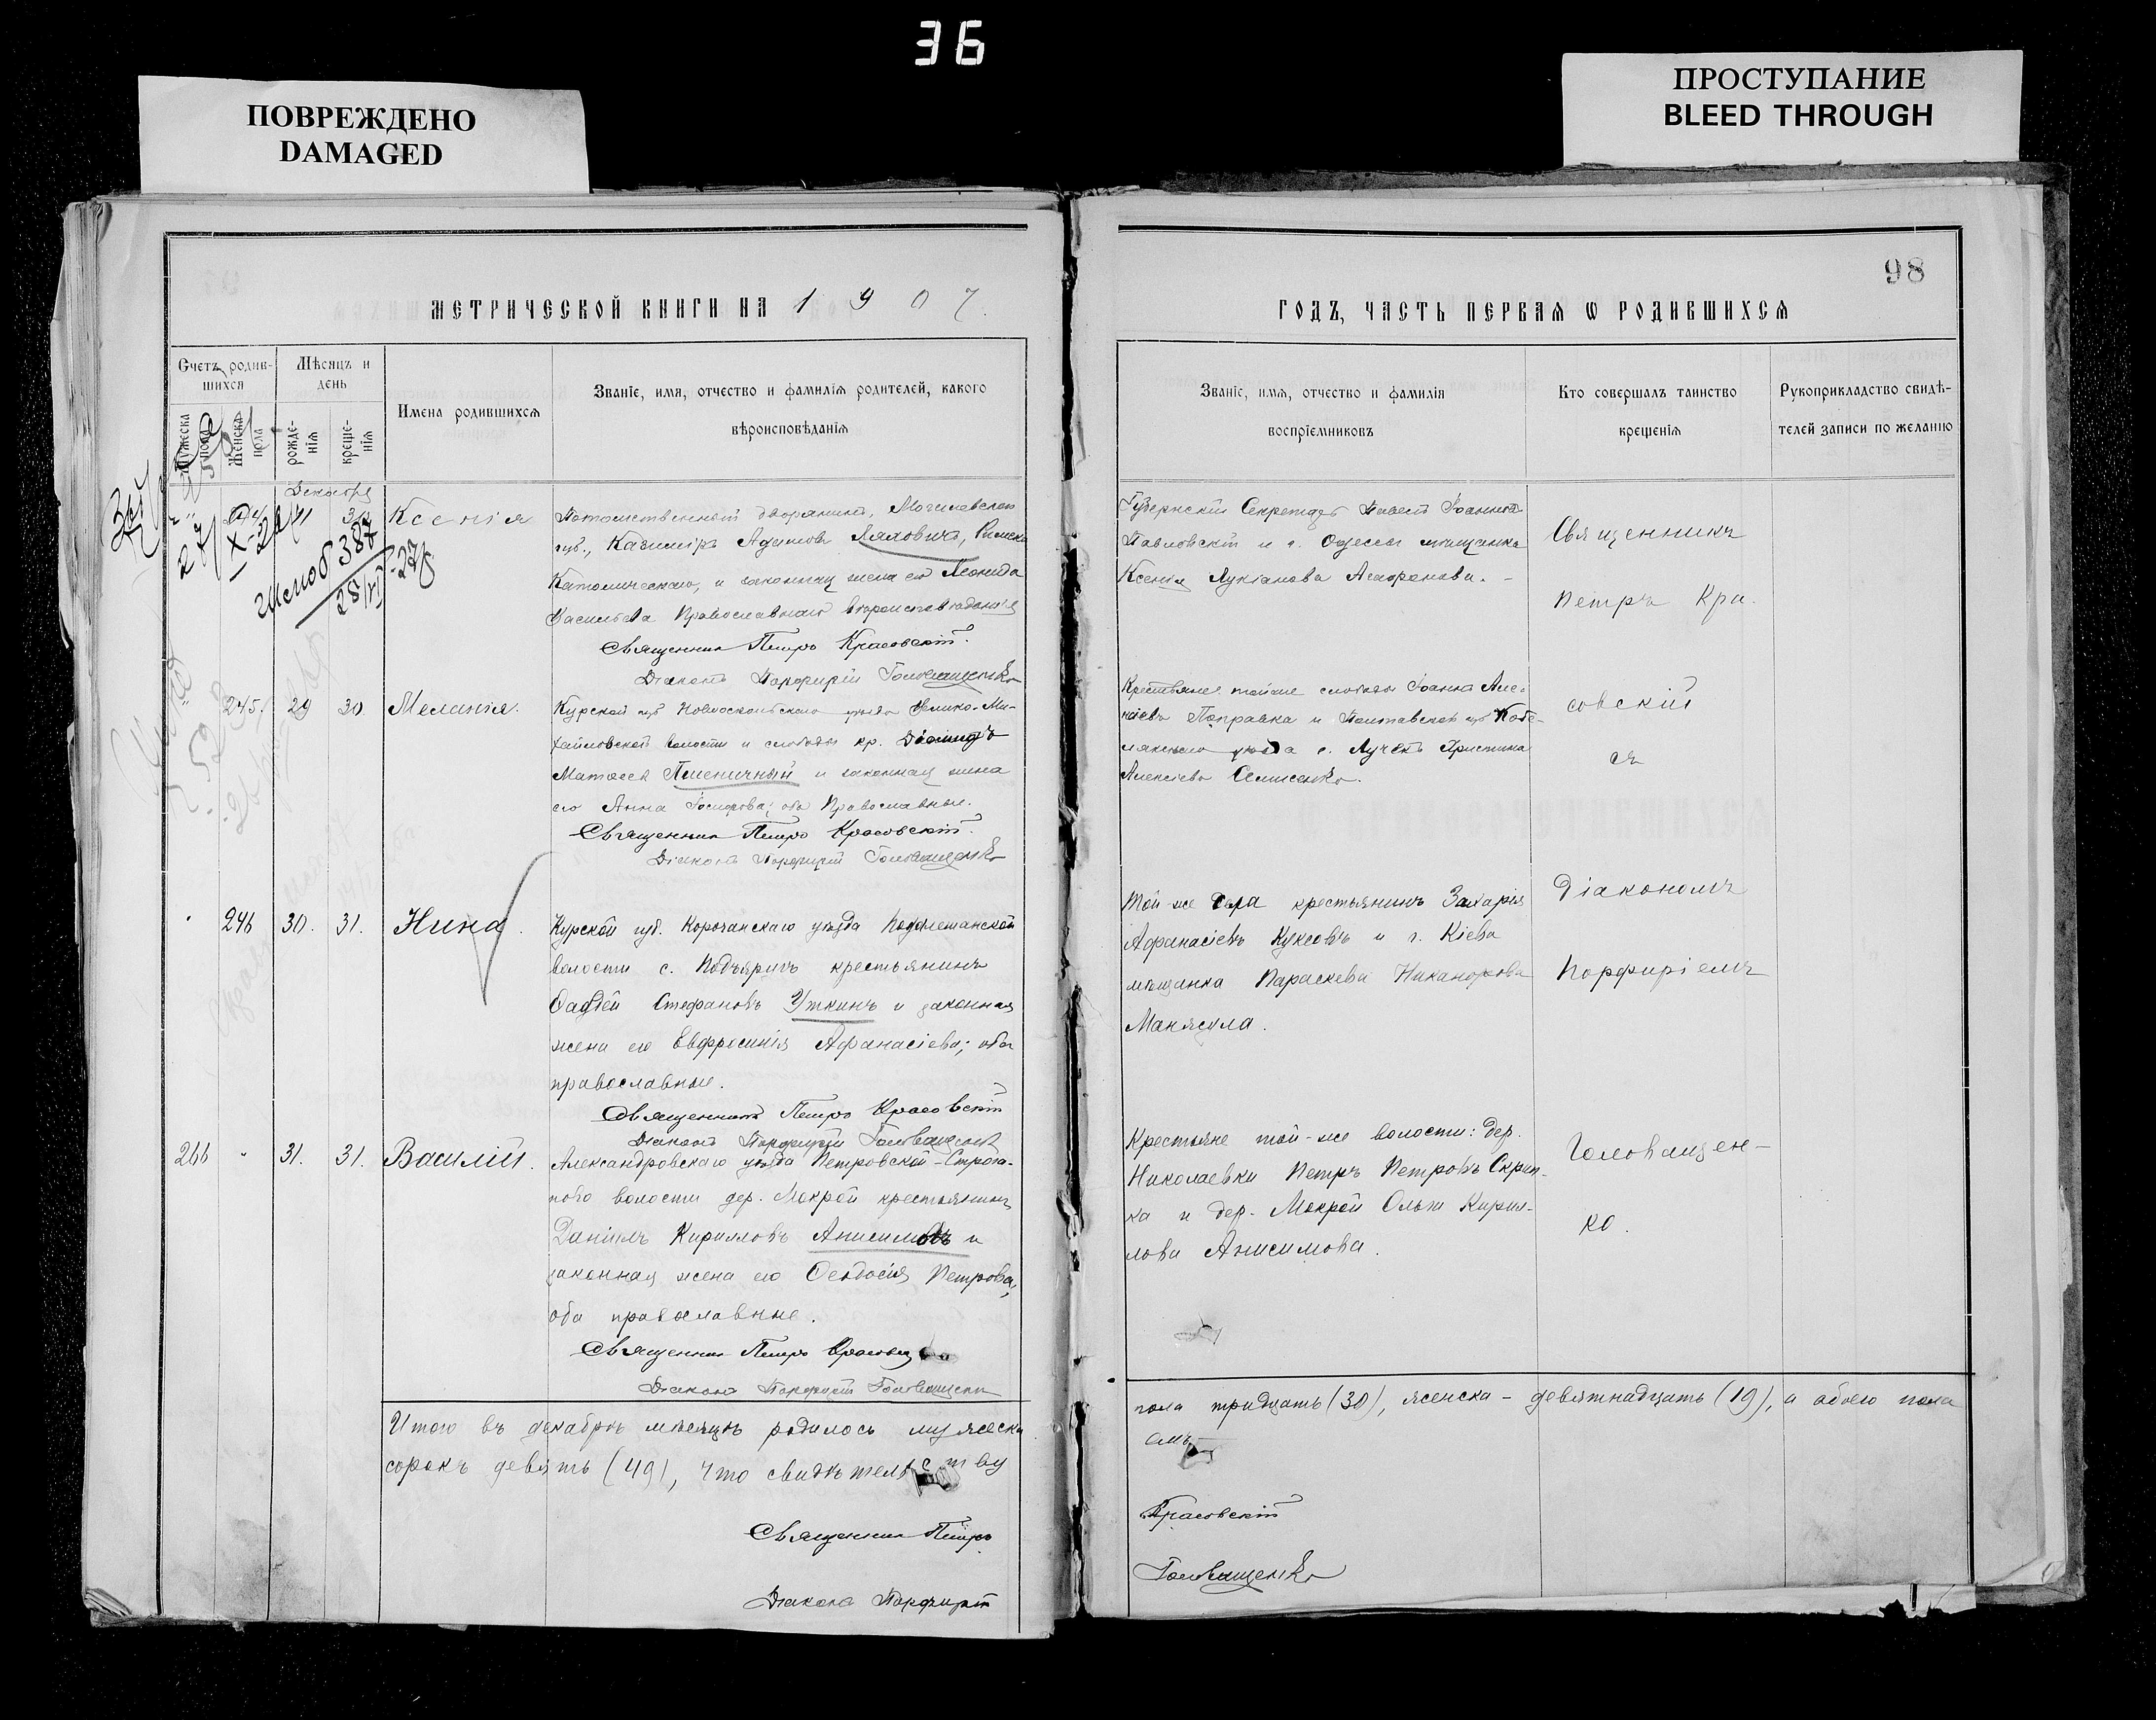 36
ПОВРЕЖДЕНО
DAMAGED
ПРОСТУПАНИЕ
BLEED THROUGH
98
МЕТРИЧЕСКОЙ КНИГИ НА 1907.
ГОДЪ, ЧАСТЬ ПЕРВАЯ Ѡ РОДИВШИХСЯ
Счетъ родив-
шихся
Мѣсяцъ и
день
Мужеска
пола
Женска
пола
рожде-
нія
креще-
нія
Имена родившихся
Званіе, имя, отчество и фамилія родителей, какого
вѣроисповѣданія
Званіе, имя, отчество и фамилія
воспріемниковъ
Кто совершалъ таинство
крещенія
Рукоприкладство свидѣ-
телей записи по желанію
Декабря
Ксенія
Потомственный дворянинъ, Могилевской
губ., Казимiръ Адамовъ Ляховичъ, Римско
Католическаго, и законная жена его Леонида
Васильева Православнаго вѣроисповѣданія
Священникъ Петръ Красовскій.
Діаконъ Порфирій Головащенко
Губернскій Секретарь Павелъ Іоанновъ
Павловскій и г. Одессы мѣщанка
Ксенія Лукіанова Агафонова.
Священникъ
Петръ Кра-
245. 29 30 Меланія.
Курской губ Новооскольскаго уѣзда Велико-Ми-
хайловской волости и слободы кр.
Матѳеевъ Пшеничный и законная жена
его Анна Іосифова; оба Православные.
Священникъ Петръ Красовскій.
Діаконъ Порфирій Головащенко
Крестьяне той же слободы Іоаннъ Але-
ксѣевъ Поправка и Полтавской губ Кобе-
лякскаго уѣзда с. Лучекъ Христина
Алексѣева Семисенко.
совскій
съ
246 30. 31. Нина.
Курской губ. Корочанскаго уѣзда
волости с. Подъяругъ крестьянинъ
Фадѣй Стефановъ Уткинъ и законная
жена его Евфросинія Афанасіева; оба
православные.
Священникъ Петръ Красовскій
Діаконъ Порфирій Головащенко
Той-же села крестьянинъ Захарія
Афанасіевъ Куксовъ и г. Кіева
мѣщанка Параскева Никанорова
Манясула.
Діакономъ
Порфиріемъ
266 " 31. 31. Василій.
Александровскаго уѣзда Петровской-Строга-
ново волости дер. Мокрой крестьянинъ
Даніилъ Кирилловъ Анисимовъ и
законная жена его Ѳеодосія Петрова;
оба православные.
Священникъ Петръ Красовскій
Діаконъ Порфирій Головащенко
Крестьяне той-же волости: дер.
Николаевки Петръ Петровъ Скрип-
ка и дер. Мокрой Ольга Кирил-
лова Анисимова.
Головащен-
ко.
Итого въ декабрѣ мѣсяцѣ родилось мужеска
пола тридцать (30), женска - девятнадцать (19), а обоего пола
сорокъ девять (49), что свидѣтельству
емъ
Священникъ Петръ
Красовскій
Діаконъ Порфирій
Головащенко